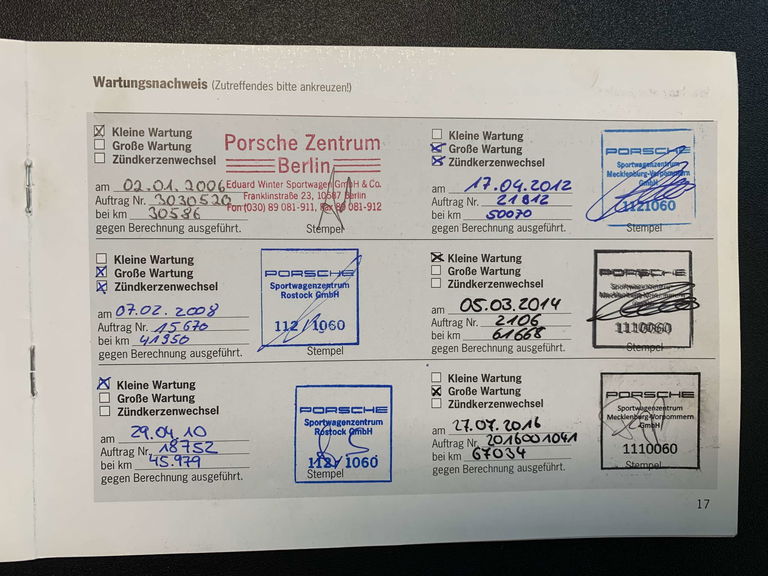 Wartungsnachweis (Zutreffendes bitte ankreuzen!)
Kleine Wartung
Große Wartung
Zündkerzenwechsel
am 02.01.2006
Auftrag Nr. 3030520
bei km 30586
gegen Berechnung ausgeführt.
Porsche Zentrum
Berlin
Eduard Winter Sportwagen GmbH & Co.
Franklinstraße 23, 10587 Berlin
Fon (030) 89 081-911, Fax 89 081-912
Stempel
Kleine Wartung
Große Wartung
Zündkerzenwechsel
am 07.02.2008
Auftrag Nr. 15670
bei km 41350
gegen Berechnung ausgeführt.
PORSCHE
Sportwagenzentrum
Rostock GmbH
112 1060
Stempel
Kleine Wartung
Große Wartung
Zündkerzenwechsel
am 29.04.10
Auftrag Nr. 18752
bei km 45.979
gegen Berechnung ausgeführt.
PORSCHE
Sportwagenzentrum
Rostock GmbH
112 1060
Stempel
Kleine Wartung
Große Wartung
Zündkerzenwechsel
am 17.04.2012
Auftrag Nr. 21812
bei km 50070
gegen Berechnung ausgeführt.
PORSCHE
Sportwagenzentrum
Mecklenburg-Vorpommern
GmbH
1121060
Stempel
Kleine Wartung
Große Wartung
Zündkerzenwechsel
am 05.03.2014
Auftrag Nr. 2106
bei km 61668
gegen Berechnung ausgeführt.
PORSCHE
1110060
Stempel
Kleine Wartung
Große Wartung
Zündkerzenwechsel
am 27.07.2016
Auftrag Nr. 2016001041
bei km 67034
gegen Berechnung ausgeführt.
PORSCHE
Sportwagenzentrum
Mecklenburg-Vorpommern
GmbH
1110060
Stempel
17